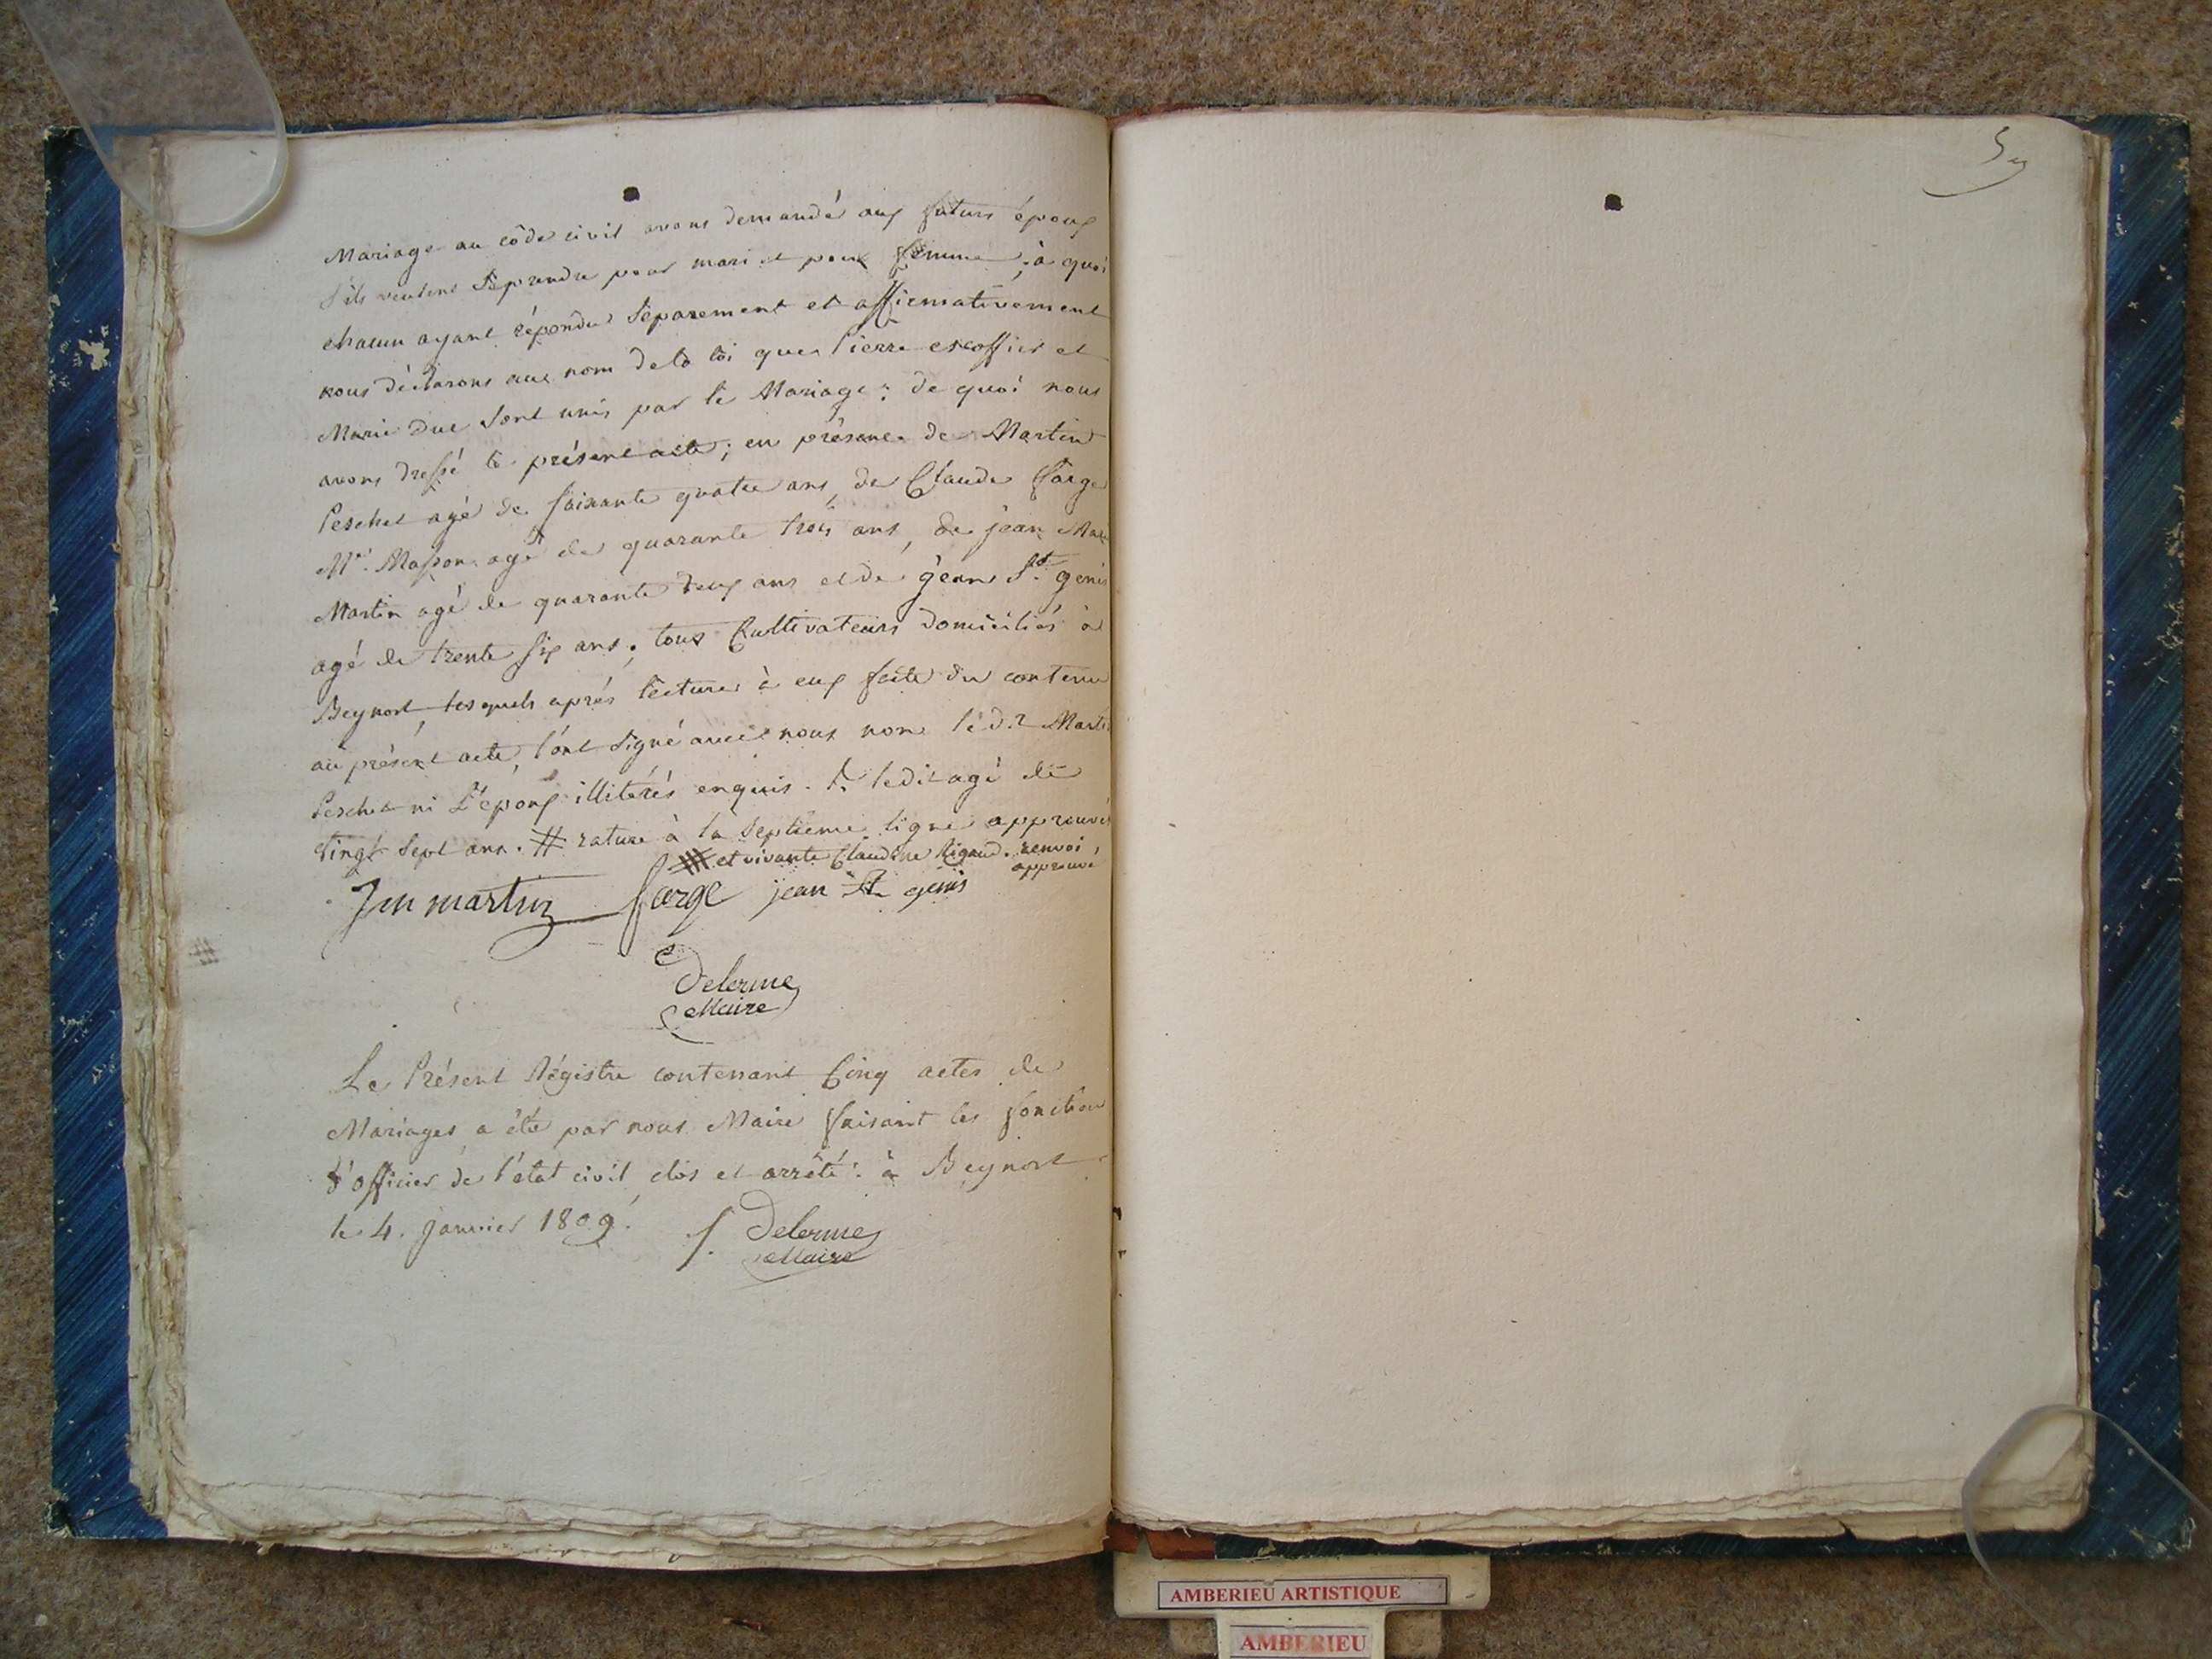 Mariage au côde civil avons demandé aux futurs époux
s'ils veulent se prendre pour mari et pour femme; à quoi
chacun ayant répondu séparement et affirmativement
nous déclarons au nom de la loi que Pierre escoffier et
Marie Duc sont unis par le Mariage: de quoi nous
avons dressé le présent acte; en présence de Martin
Peschet agé de soixante quatre ans, de Claude Farge
Me. Masson agé de quarante trois ans, de jean Marie
Martin agé de quarante deux ans et de jean St. genis
agé de trente six ans; tous Cultivateurs domiciliés à
Beynost, lesquels après lecture à eux faite du contenu
au présent acte, l'ont signé avec nous non led.t Martin
Peschet ni L'époux illitérés enquis. ledit agé de
vingt sept ans. # rature à la septieme ligne approuvée
# et vivante Claudine Rigaud. renvoi
approuvé
Jm martin farge jean St genis
Delerme
Maire
Le Présent Régistre contenant Cinq actes de
Mariages a été par nous Maire faisant les fonctions
d'officier de l'état civil clos et arrêté: à Beynost
le 4. Janvier 1809.
Delerme
Maire
AMBERIEU ARTISTIQUE
AMBERIEU